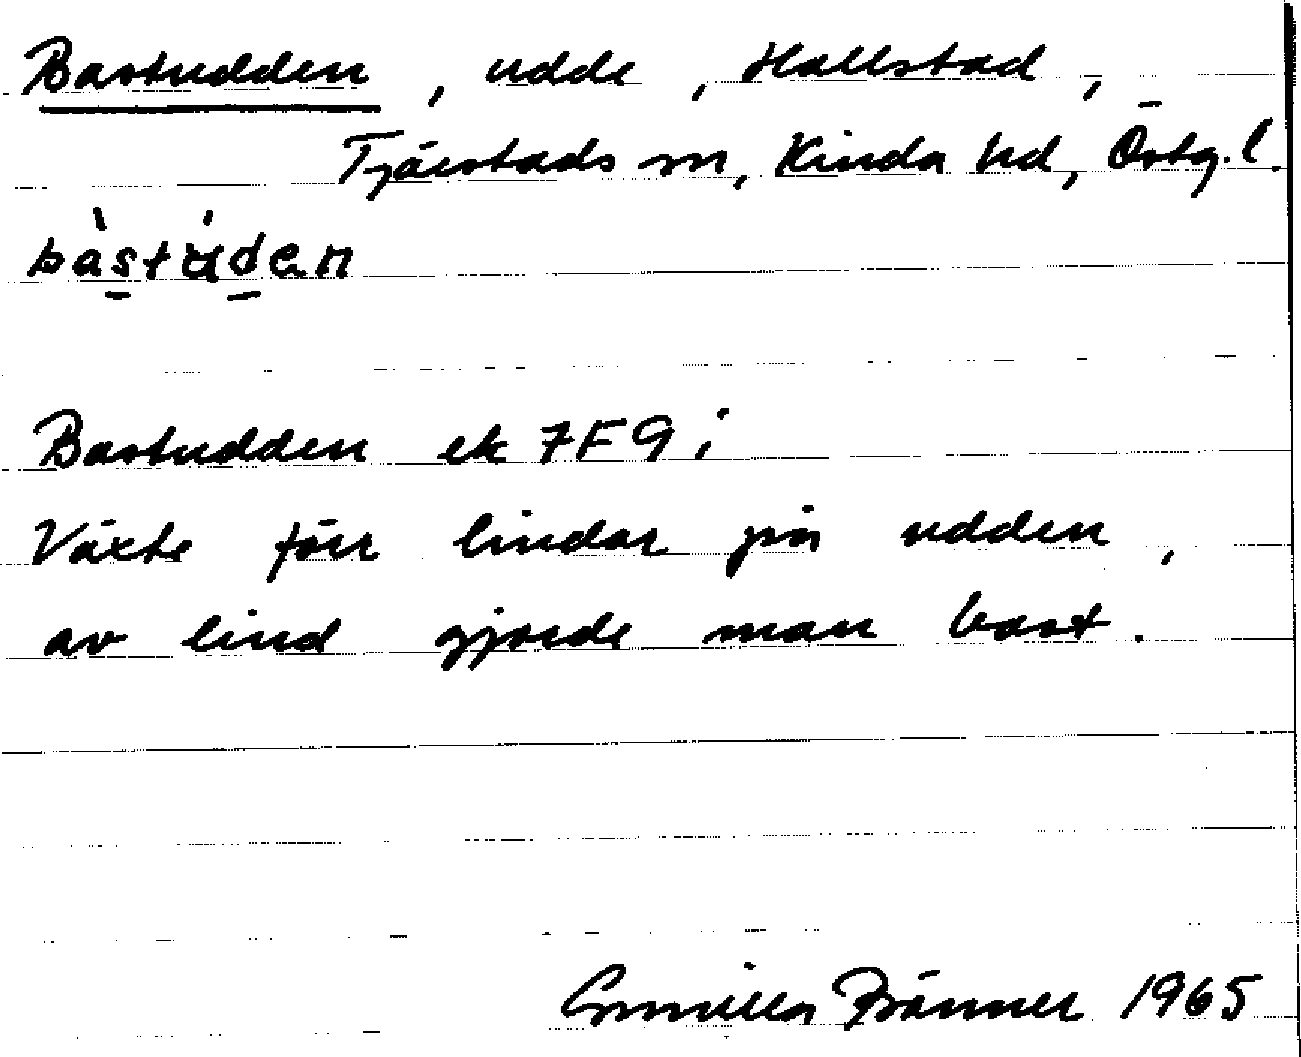 Bastudden, udde, Hallstad,
Tjärstads sn, Kinda hd, Östg. l.
bàstúden
Bastudden ek 7F9i
Växte förr lindar på udden,
av lind gjorde man bast.
Gunilla Bränner 1965